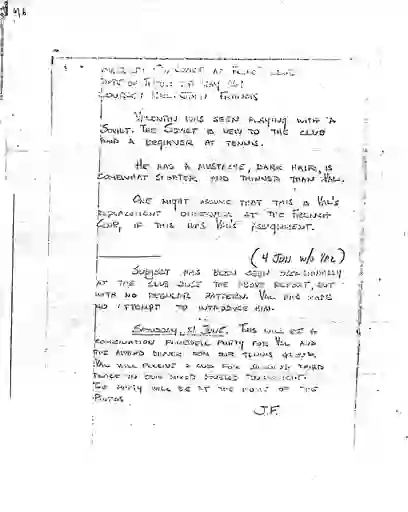 AT
CLUB
VALENTIN WAS SEEN PLAYING WITH A
SOVIET. THE SOVIET IS NEW TO THE CLUB
AND A BEGINNER AT TENNIS.
HE HAS A MUSTACHE, DARK HAIR, IS
SOMEWHAT SHORTER AND THINNER THAN VAL.
ONE MIGHT ASSUME THAT THIS IS VAL'S
REPLACEMENT AT THE FRENCH
CLUB, IF THIS WAS VAL'S ASSIGNMENT.
(4 JUN W/O VAL)
SUBJECT HAS BEEN SEEN OCCASIONALLY
AT THE CLUB SINCE THE ABOVE REPORT, BUT
WITH NO REGULAR PATTERN. VAL HAS MADE
NO ATTEMPT TO INTRODUCE HIM.
JUNE. THIS WILL BE A
COMBINATION FAREWELL PARTY FOR VAL AND
THE AWARD DINNER FOR OUR TENNIS
VAL WILL RECEIVE A FOR THIRD
PLACE IN OUR MIXED DOUBLES TOURNAMENT.
PARTY WILL BE AT THE HOME OF THE
J.F.